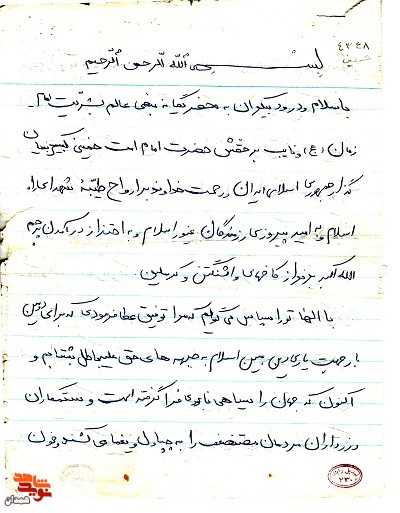 ۴۳۴۸
بسم الله الرحمن الرحیم
باسلام و درود بیکران به محضر یگانه منجی عالم بشریت امام
زمان (عج) و نایب برحقش حضرت امام امت خمینی کبیر بنیان
گذار جمهوری اسلامی ایران و رحمت خداوند بر ارواح طیبه شهدای راه
اسلام و به امید پیروزی رزمندگان غیور اسلام و به اهتزاز در آمدن پرچم
الله اکبر بر فراز کاخهای واشنگتن و کرملین.
بارالها تو را سپاس می گویم که مرا توفیق عطا فرمودی که برای دومین
بار جهت یاری دین مبین اسلام به جبهه های حق علیه باطل بشتابم و
اکنون که جهان را سیاهی نابودی فرا گرفته است و ستمکاران
و زرداران مردمان مستضعف را به چپاول و یغما می کشند و خون
نوید شاهد
همدان
۲۳۰